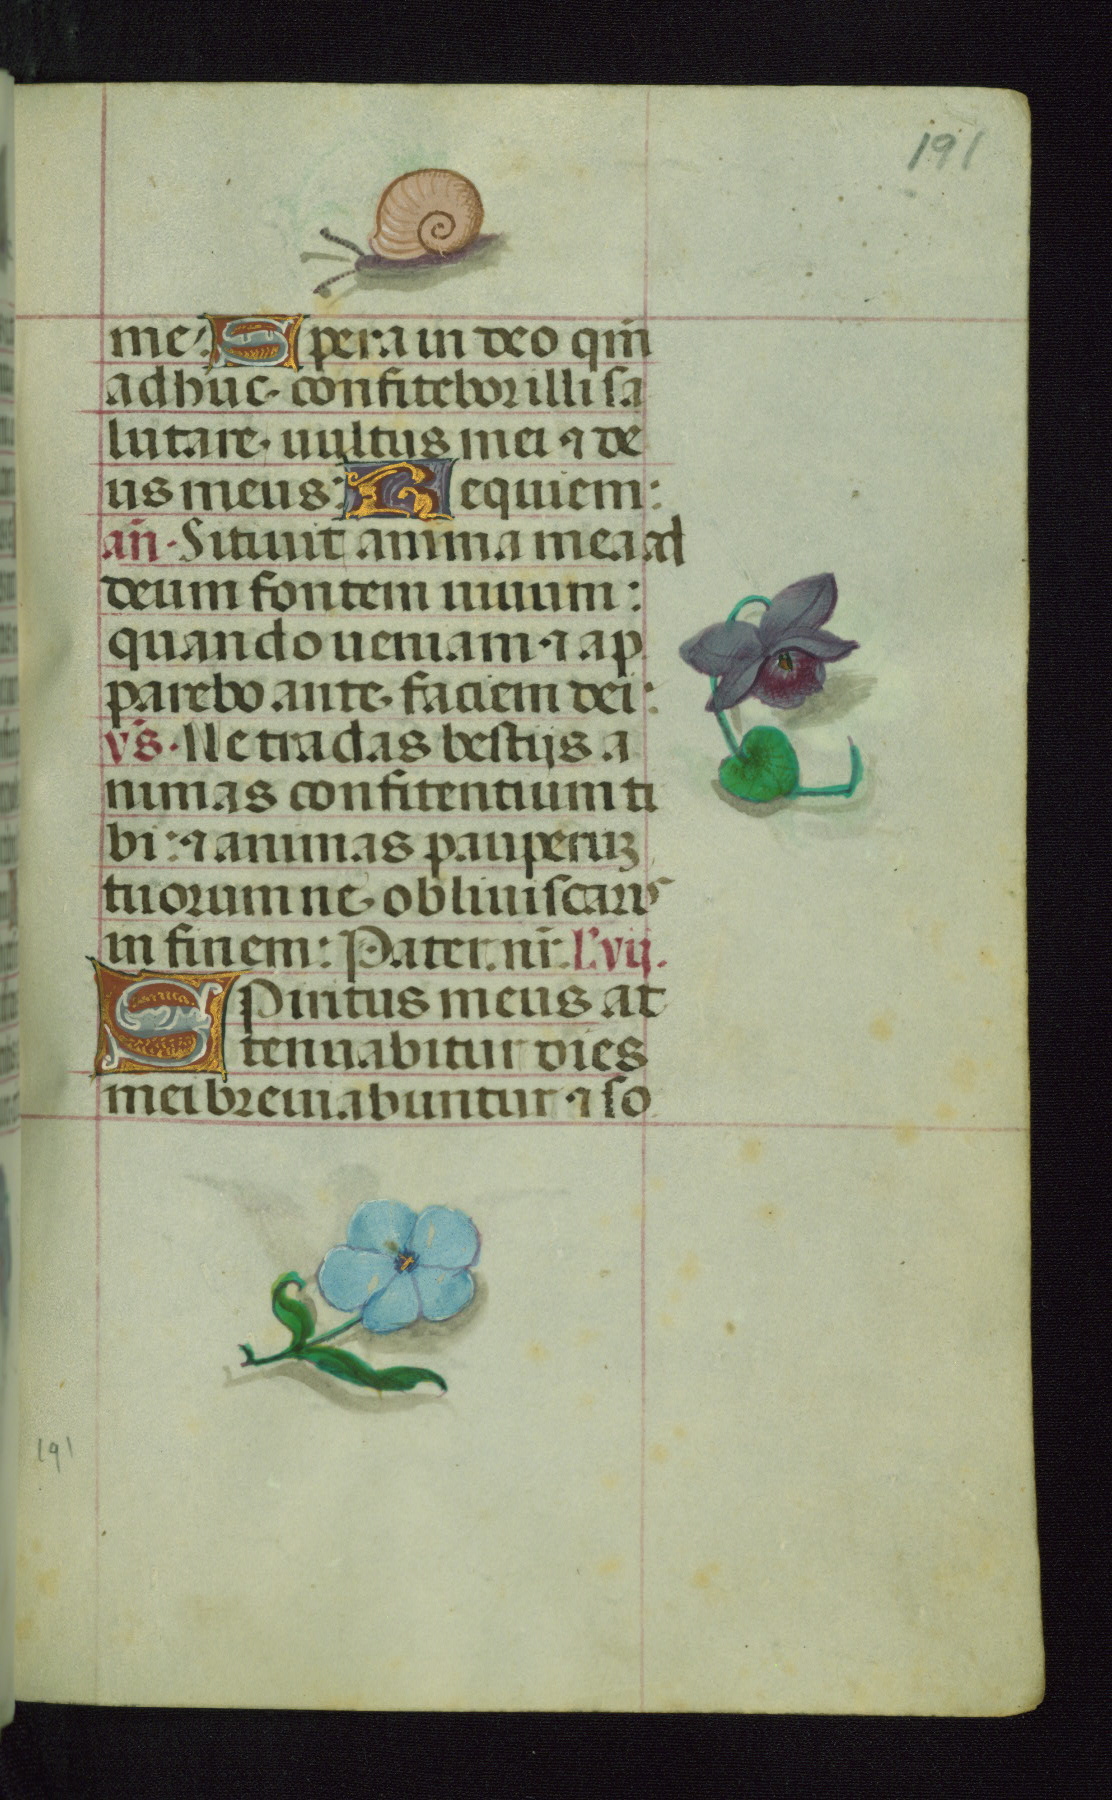 191
me: Spera in deo qm̄
adhuc confitebor illi sa
lutare vultus mei ⁊ de
us meus: Requiem:
an̄. Sitiuit anima mea ad
deum fontem uiuum:
quando ueniam ⁊ ap
parebo ante faciem dei:
v̄s. Ne tradas bestijs a
nimas confitentium ti
bi: ⁊ animas pauperuꝫ
tuorum ne obliuiscaris
in finem: Pater nr̄. Lvij.
Spiritus meus at
tenuabitur dies
mei breuiabuntur ⁊ so
191